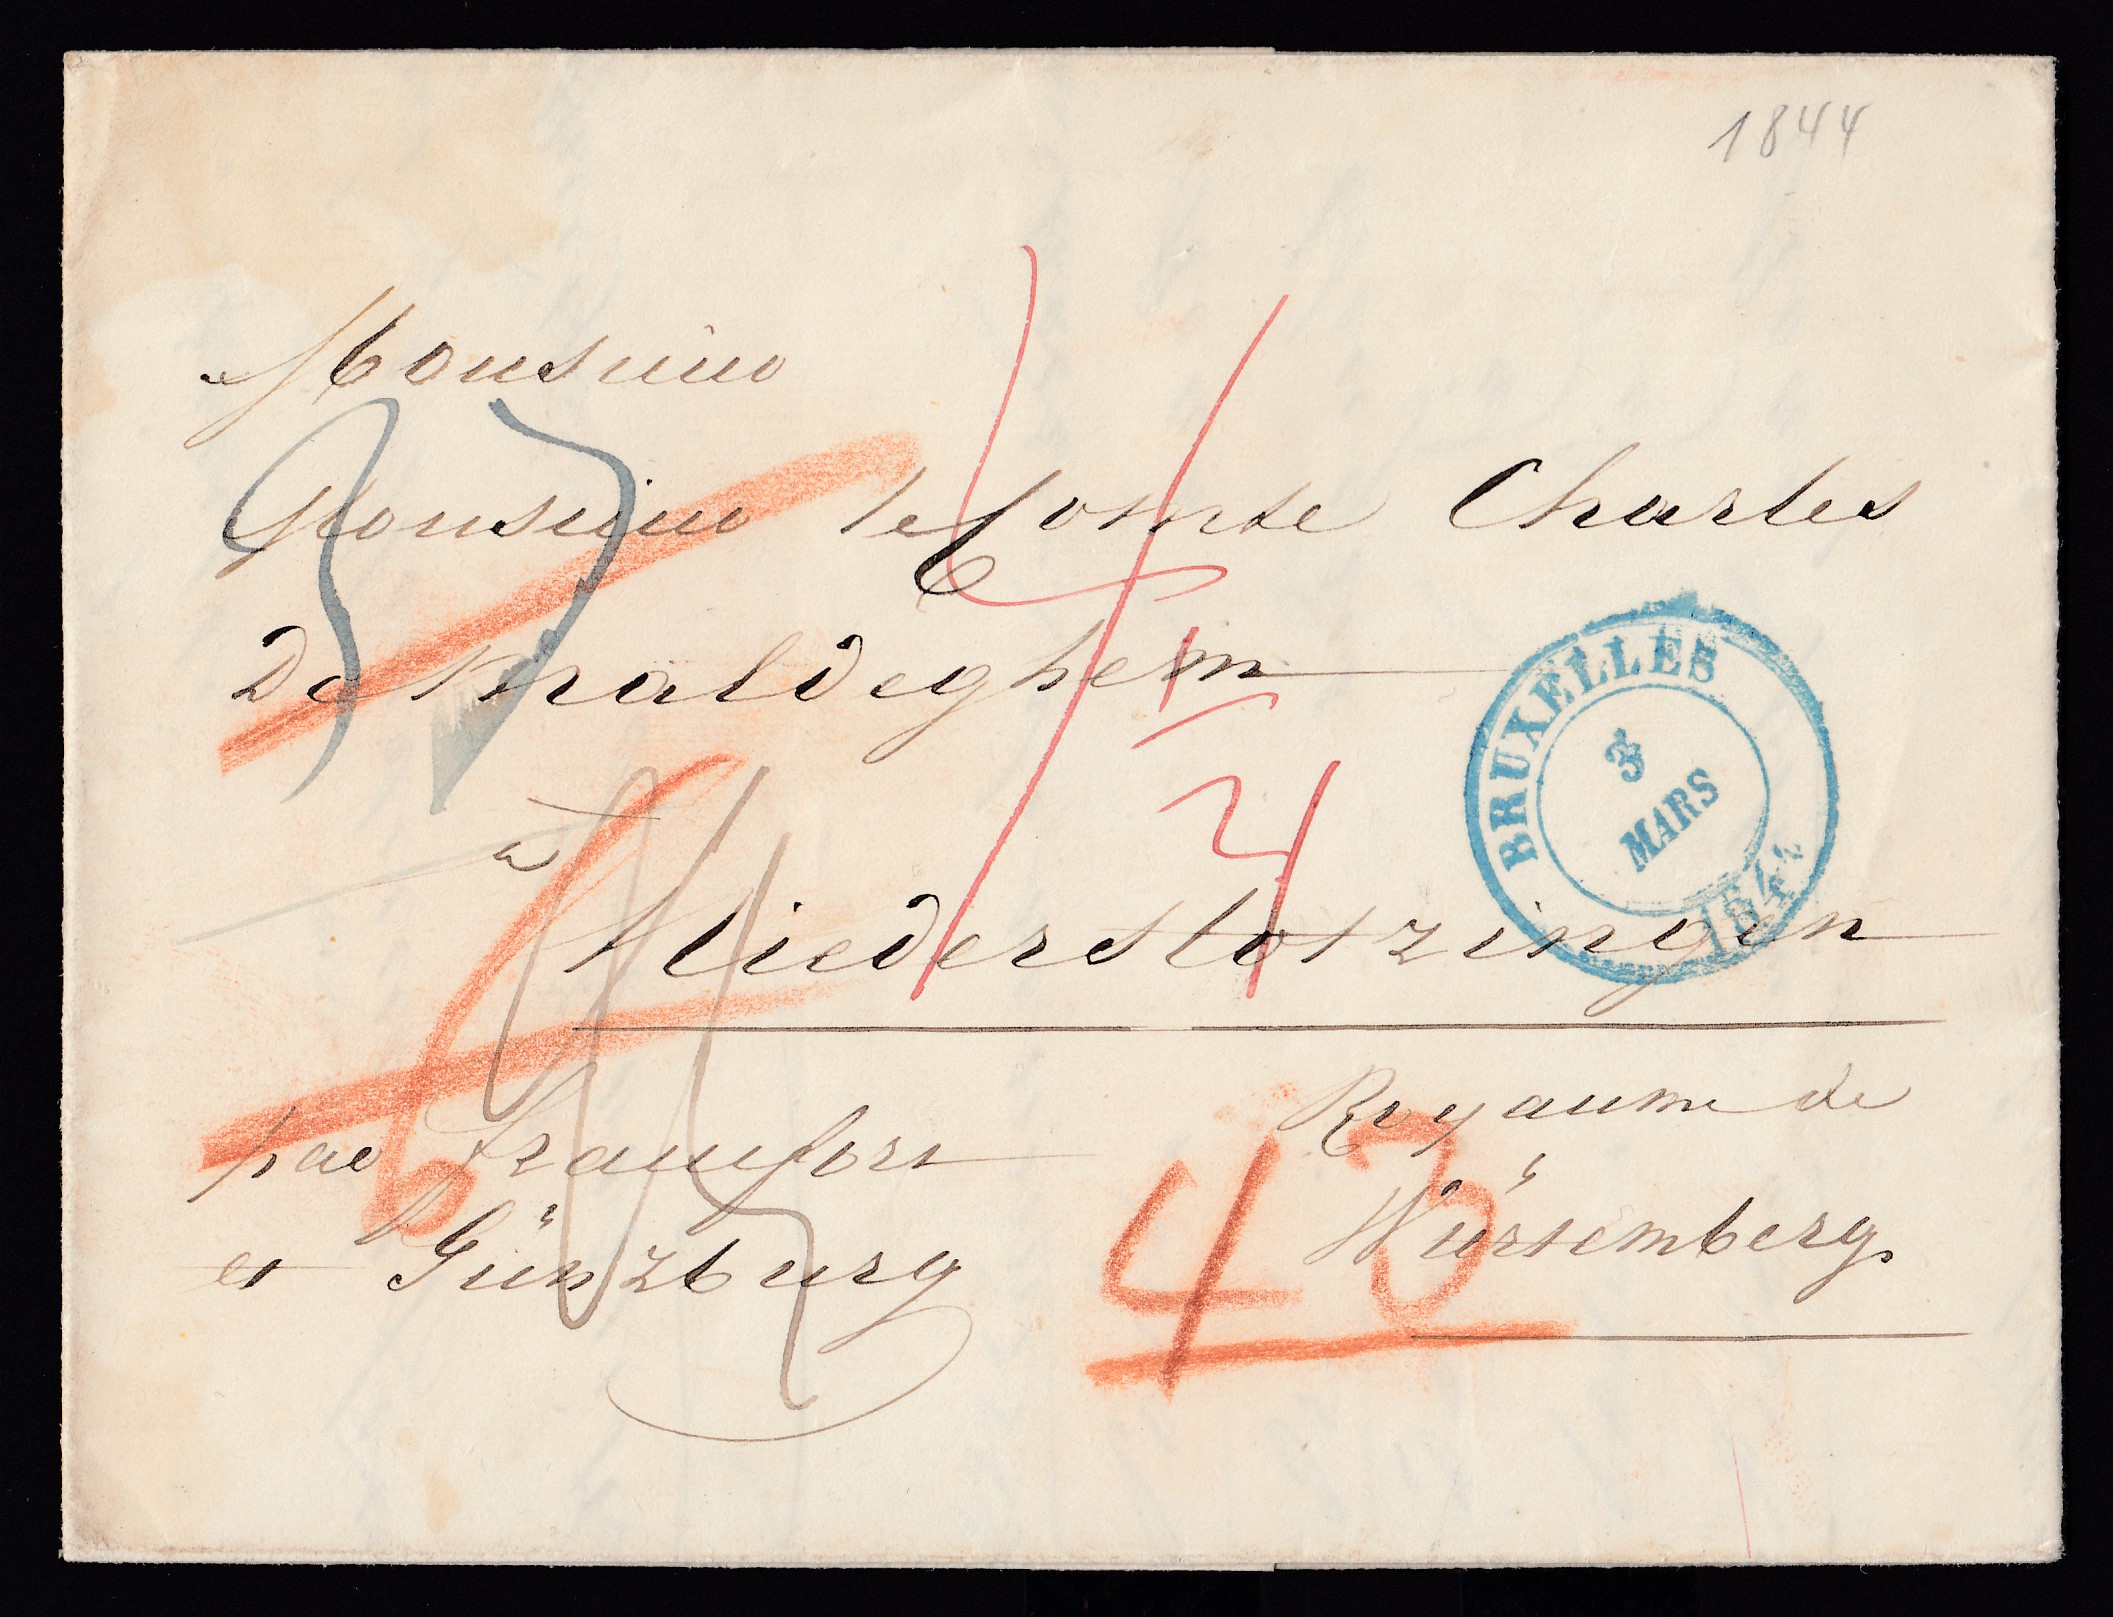 1844
Monsieur
Monsieur le Comte Charles
De Maldeghem
à
Niederstotzingen
par Francfort
et Günzburg
Royaume de
Würtemberg.
BRUXELLES
3
MARS
1844
43